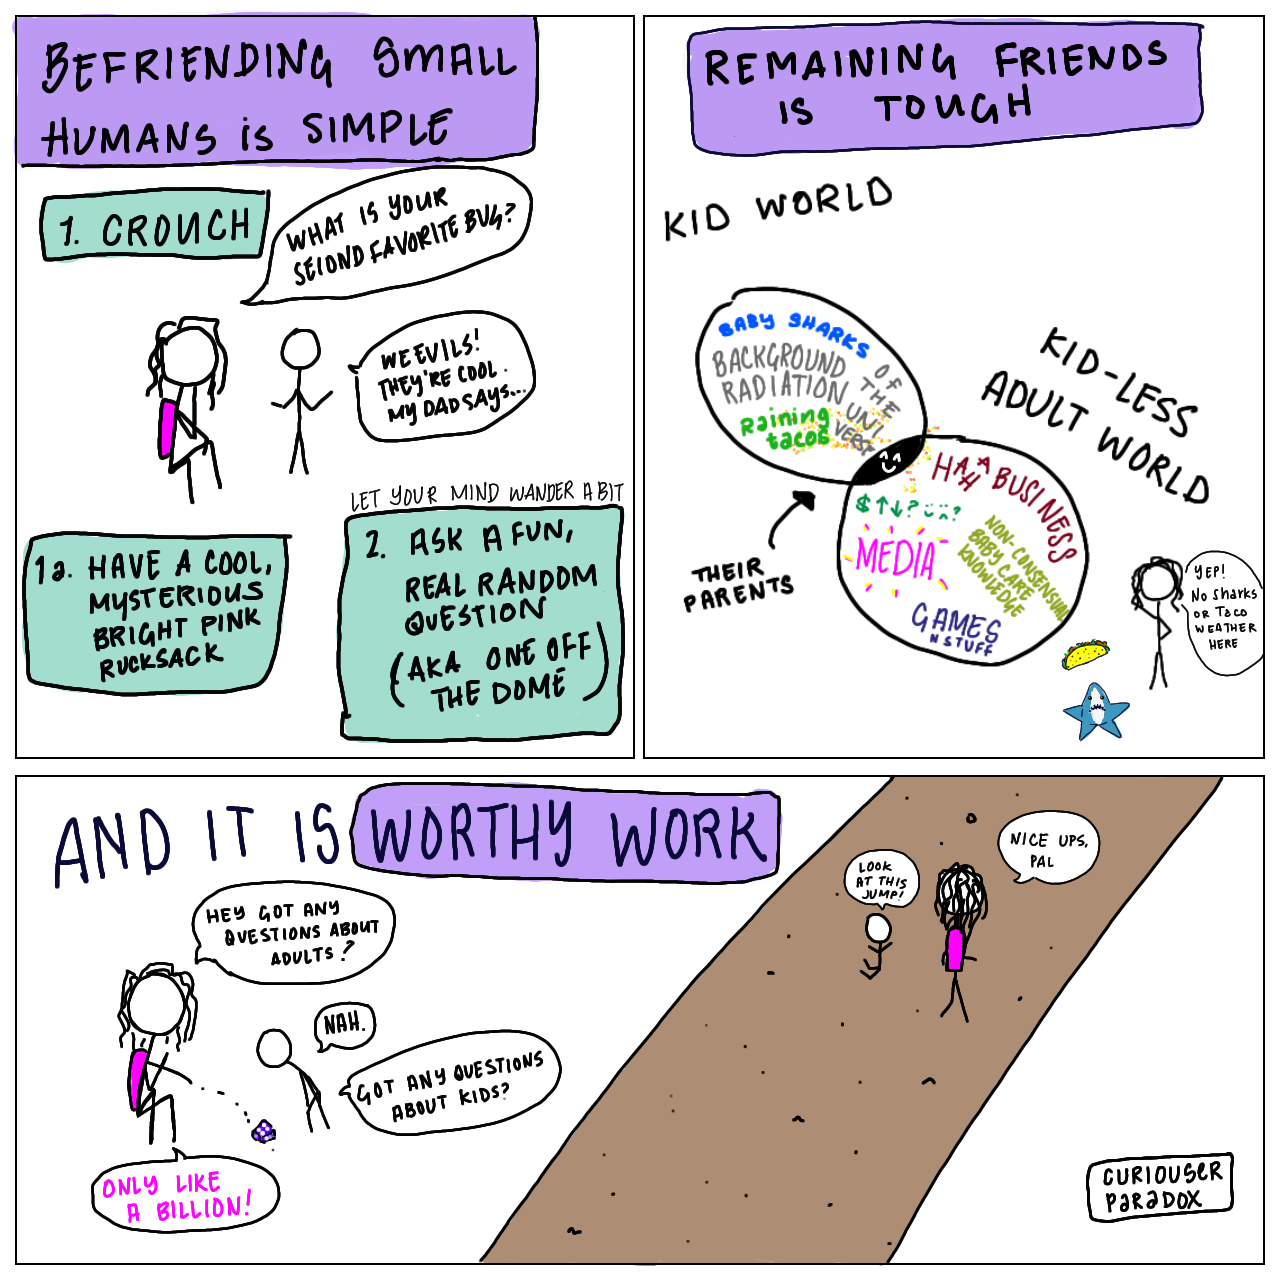 BEFRIENDING SMALL
HUMANS is SIMPLE
1. CROUCH
WHAT IS YOUR
SECOND FAVORITE BUG?
WEEVILS!
THEY'RE COOL.
MY DAD SAYS...
1a. HAVE A COOL,
MYSTERIOUS
BRIGHT PINK
RUCKSACK
LET YOUR MIND WANDER A BIT
2. ASK A FUN,
REAL RANDOM
QUESTION
(AKA ONE OFF
THE DOME)
REMAINING FRIENDS
IS TOUGH
KID WORLD
BABY SHARKS
BACKGROUND
RADIATION
OF
THE
UNI
VERSE
Raining
tacos
KID-LESS
ADULT WORLD
THEIR
PARENTS
HAHA BUSINESS
$↑↓?
MEDIA
NON-CONSENSUAL
BABY CARE
KNOWLEDGE
GAMES
N STUFF
YEP!
No Sharks
OR TACO
WEATHER
HERE
AND IT IS WORTHY WORK
HEY GOT ANY
QUESTIONS ABOUT
ADULTS?
NAH.
GOT ANY QUESTIONS
ABOUT KIDS?
ONLY LIKE
A BILLION!
LOOK
AT THIS
JUMP!
NICE UPS,
PAL
CURIOUSER
PARADOX